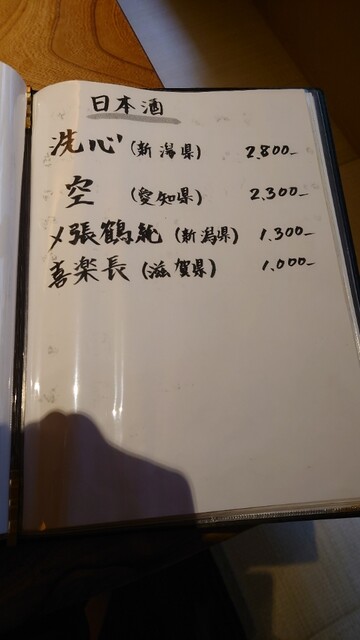 日本酒
洗心 (新潟県) 2.800-
空 (愛知県) 2.300-
〆張鶴純 (新潟県) 1.300-
喜楽長 (滋賀県) 1.000-